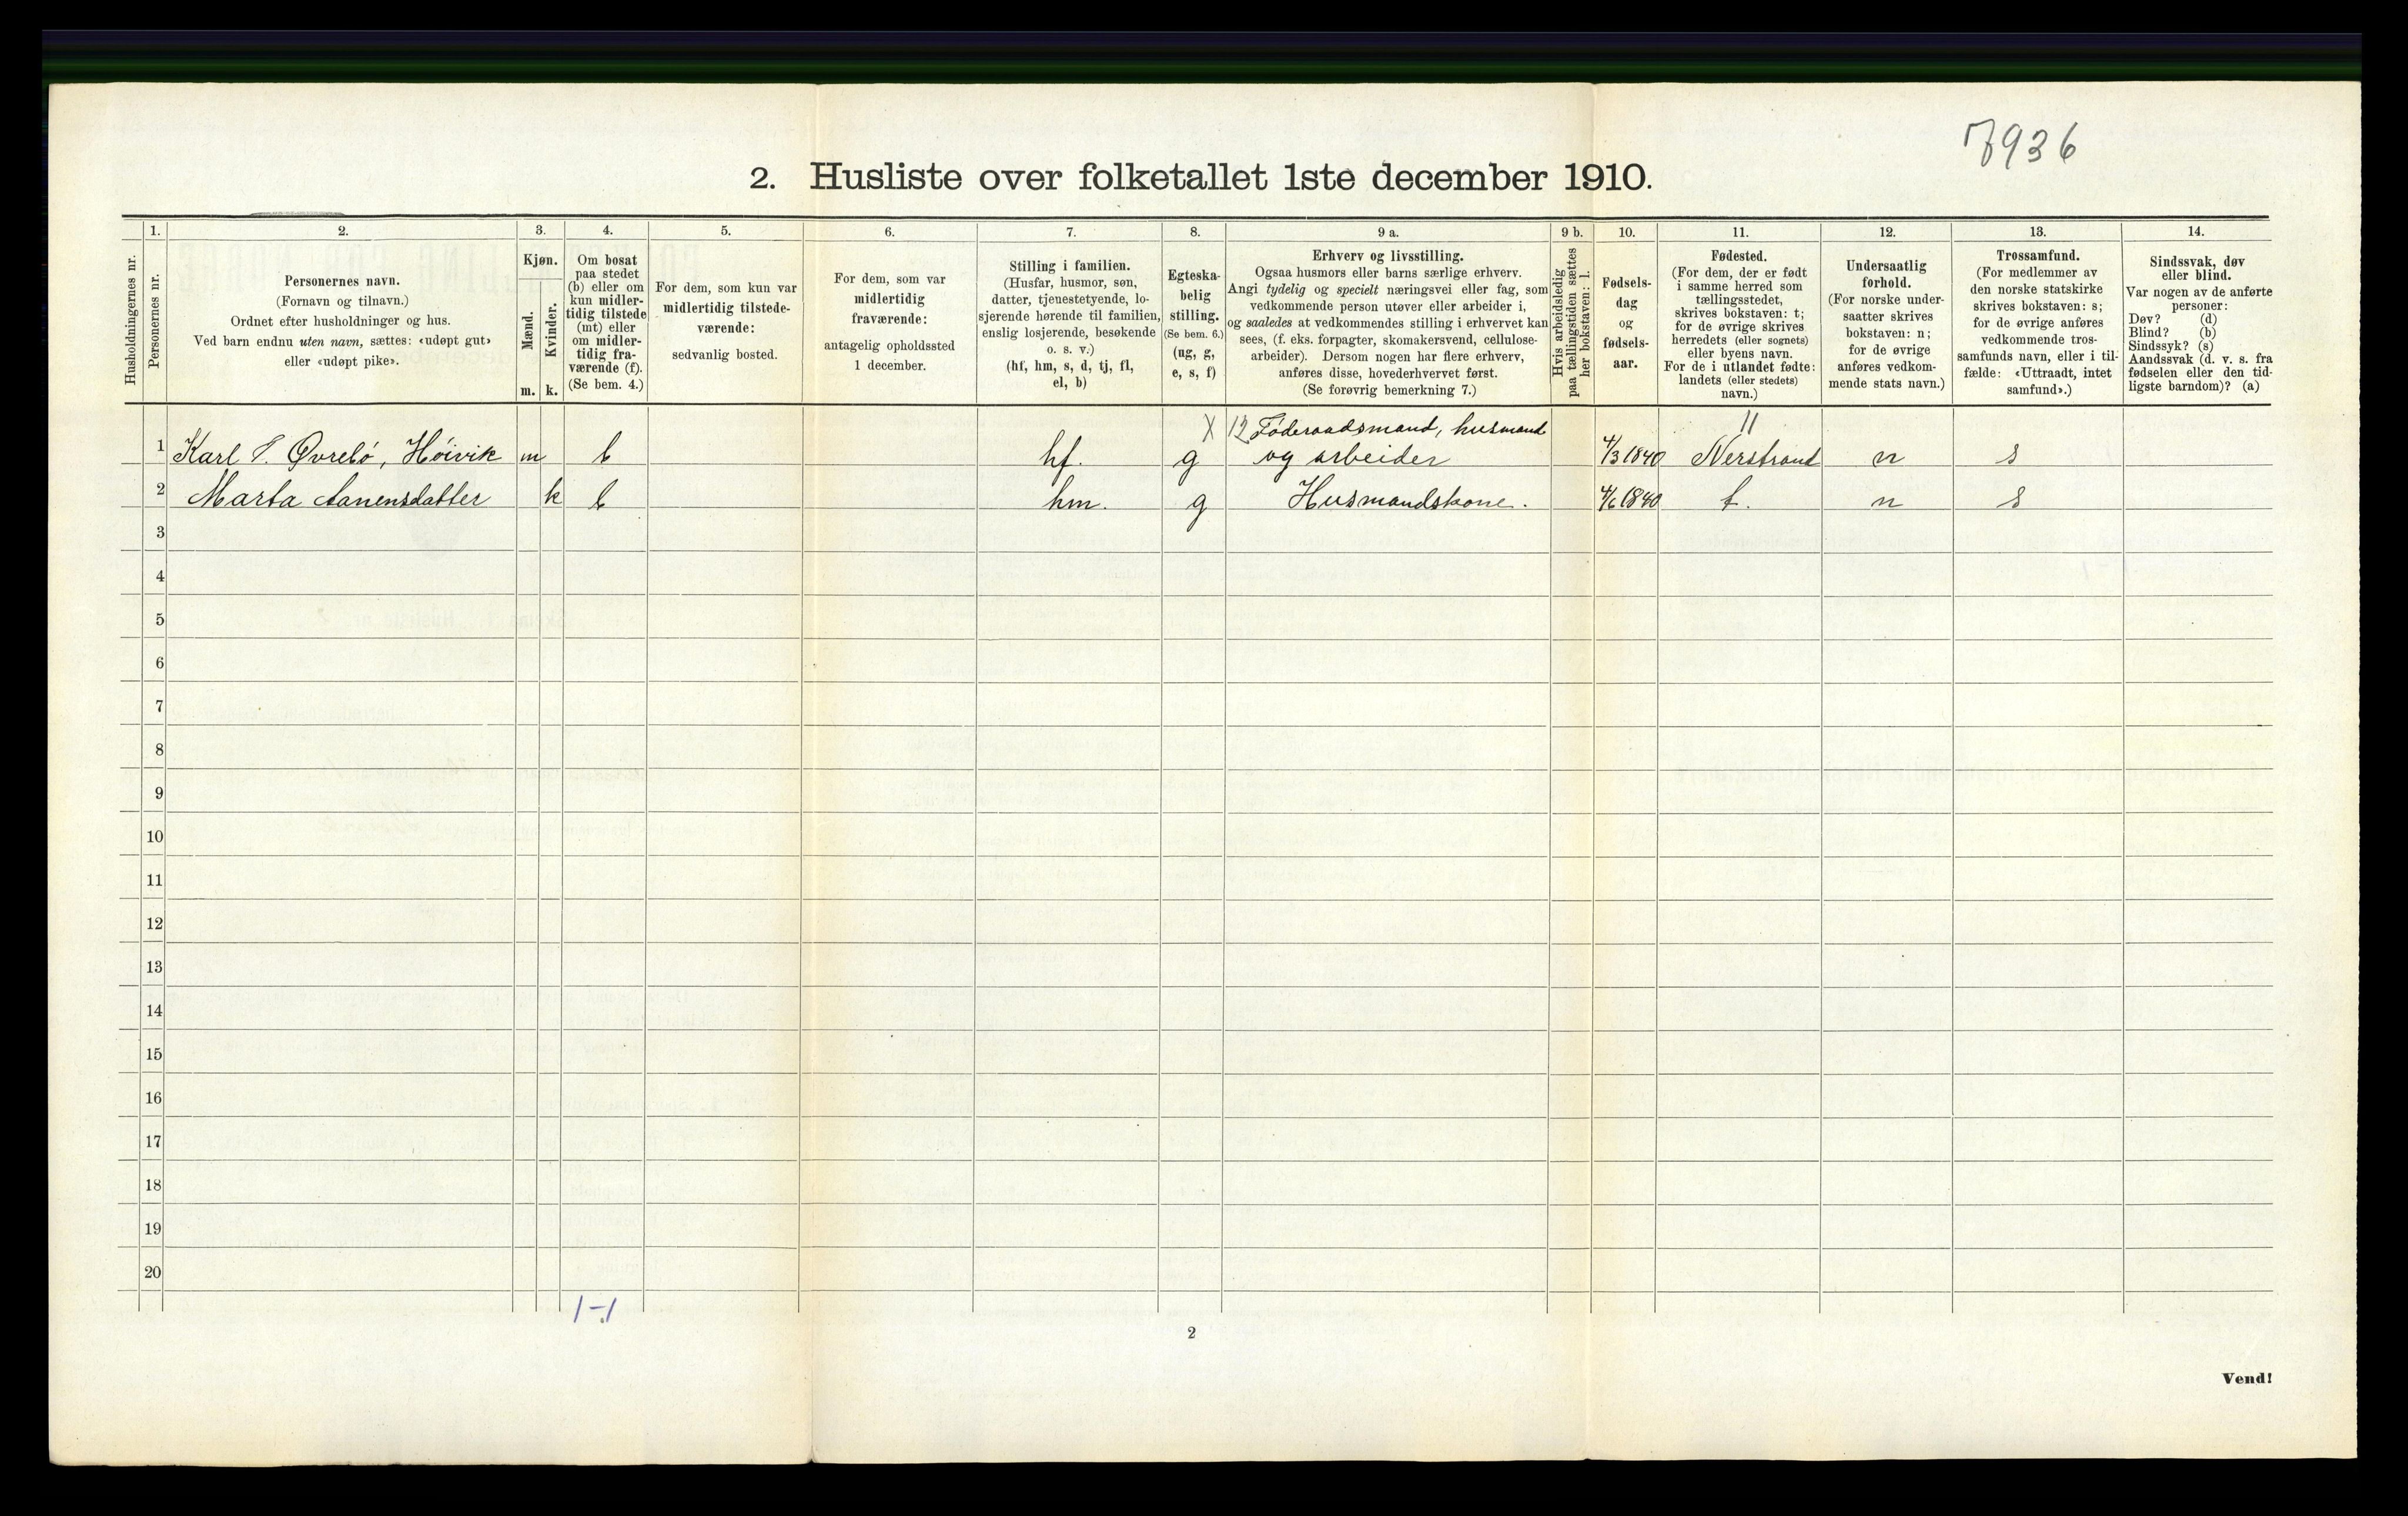 7936
2. Husliste over folketallet 1ste december 1910.
Husholdningernes nr.
1.
Personernes nr.
2.
Personernes navn.
(Fornavn og tilnavn.)
Ordnet efter husholdninger og hus.
Ved barn endnu uten navn, sættes: «udøpt gut»
eller «udøpt pike».
3.
Kjøn.
Mænd.
Kvinder.
m. k.
4.
Om bosat
paa stedet
(b) eller om
kun midler-
tidig tilstede
(mt) eller
om midler-
tidig fra-
værende (f).
(Se bem. 4.)
5.
For dem, som kun var
midlertidig tilstede-
værende:
sedvanlig bosted.
6.
For dem, som var
midlertidig
fraværende:
antagelig opholdssted
1 december.
7.
Stilling i familien.
(Husfar, husmor, søn,
datter, tjenestetyende, lo-
sjerende hørende til familien,
enslig losjerende, besøkende
o. s. v.)
(hf, hm, s, d, tj, fl,
el, b)
8.
Egteska-
belig
stilling.
(Se bem. 6.)
(ug, g,
e, s, f)
9 a.
Erhverv og livsstilling.
Ogsaa husmors eller barns særlige erhverv.
Angi tydelig og specielt næringsvei eller fag, som
vedkommende person utøver eller arbeider i,
og saaledes at vedkommendes stilling i erhvervet kan
sees, (f. eks. forpagter, skomakersvend, cellulose-
arbeider). Dersom nogen har flere erhverv,
anføres disse, hovederhvervet først.
(Se forøvrig bemerkning 7.)
9 b.
Hvis arbeidsledig
paa tællingstiden sættes
her bokstaven: l.
10.
Fødsels-
dag
og
fødsels-
aar.
11.
Fødested.
(For dem, der er født
i samme herred som
tællingsstedet,
skrives bokstaven: t;
for de øvrige skrives
herredets (eller sognets)
eller byens navn.
For de i utlandet fødte:
landets (eller stedets)
navn.)
12.
Undersaatlig
forhold.
(For norske under-
saatter skrives
bokstaven: n;
for de øvrige
anføres vedkom-
mende stats navn.)
13.
Trossamfund.
(For medlemmer av
den norske statskirke
skrives bokstaven: s;
for de øvrige anføres
vedkommende tros-
samfunds navn, eller i til-
fælde: «Uttraadt, intet
samfund».)
14.
Sindssvak, døv
eller blind.
Var nogen av de anførte
personer:
Døv? (d)
Blind? (b)
Sindssyk? (s)
Aandssvak (d. v. s. fra
fødselen eller den tid-
ligste barndom)? (a)
X 12 Føderaadsmand, husmand 11
1 Karl T. Øvrebö, Höivik m b hf. g og arbeider 4/3 1840 Nerstrand n s
2 Marta Aanensdatter k b hm. g Husmandskone. 4/6 1840 t. n s
3
4
5
6
7
8
9
10
11
12
13
14
15
16
17
18
19
20
1-1
2
Vend!